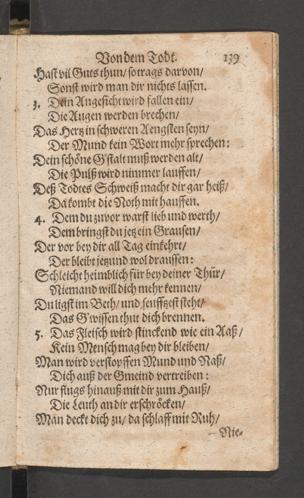 Von dem Todt. 139
Hast vil Guts thun/ so trags darvon/
Sonst wird man dir nichts lassen.
3. Dein Angesicht wird fallen ein/
Die Augen werden brechen/
Das Hertz in schweren Aengsten seyn/
Der Mund kein Wort mehr sprechen:
Dein schöne G'stalt muß werden alt/
Die Pulß wird nimmer lauffen/
Deß Todtes Schweiß macht dir gar heiß/
Da kombt die Noth mit hauffen.
4. Dem du zuvor warst lieb und werth/
Dem bringst du jetz ein Grausen/
Der vor bey dir all Tag einkehrt/
Der bleibt jetzund wol draussen:
Schleicht heimblich für bey deiner Thür/
Niemand will dich mehr kennen/
Du ligst im Beth/ und seuffzest steht/
Das G'wissen thut dich brennen.
5. Das Fleisch wird stinckend wie ein Aaß/
Kein Mensch mag bey dir bleiben/
Man wird verstopffen Mund und Naß/
Dich auß der Gmeind vertreiben:
Nur flugs hinauß mit dir zum Hauß/
Die Leuth an dir erschröcken/
Man deckt dich zu/ da schlaff mit Ruh/
Nie-